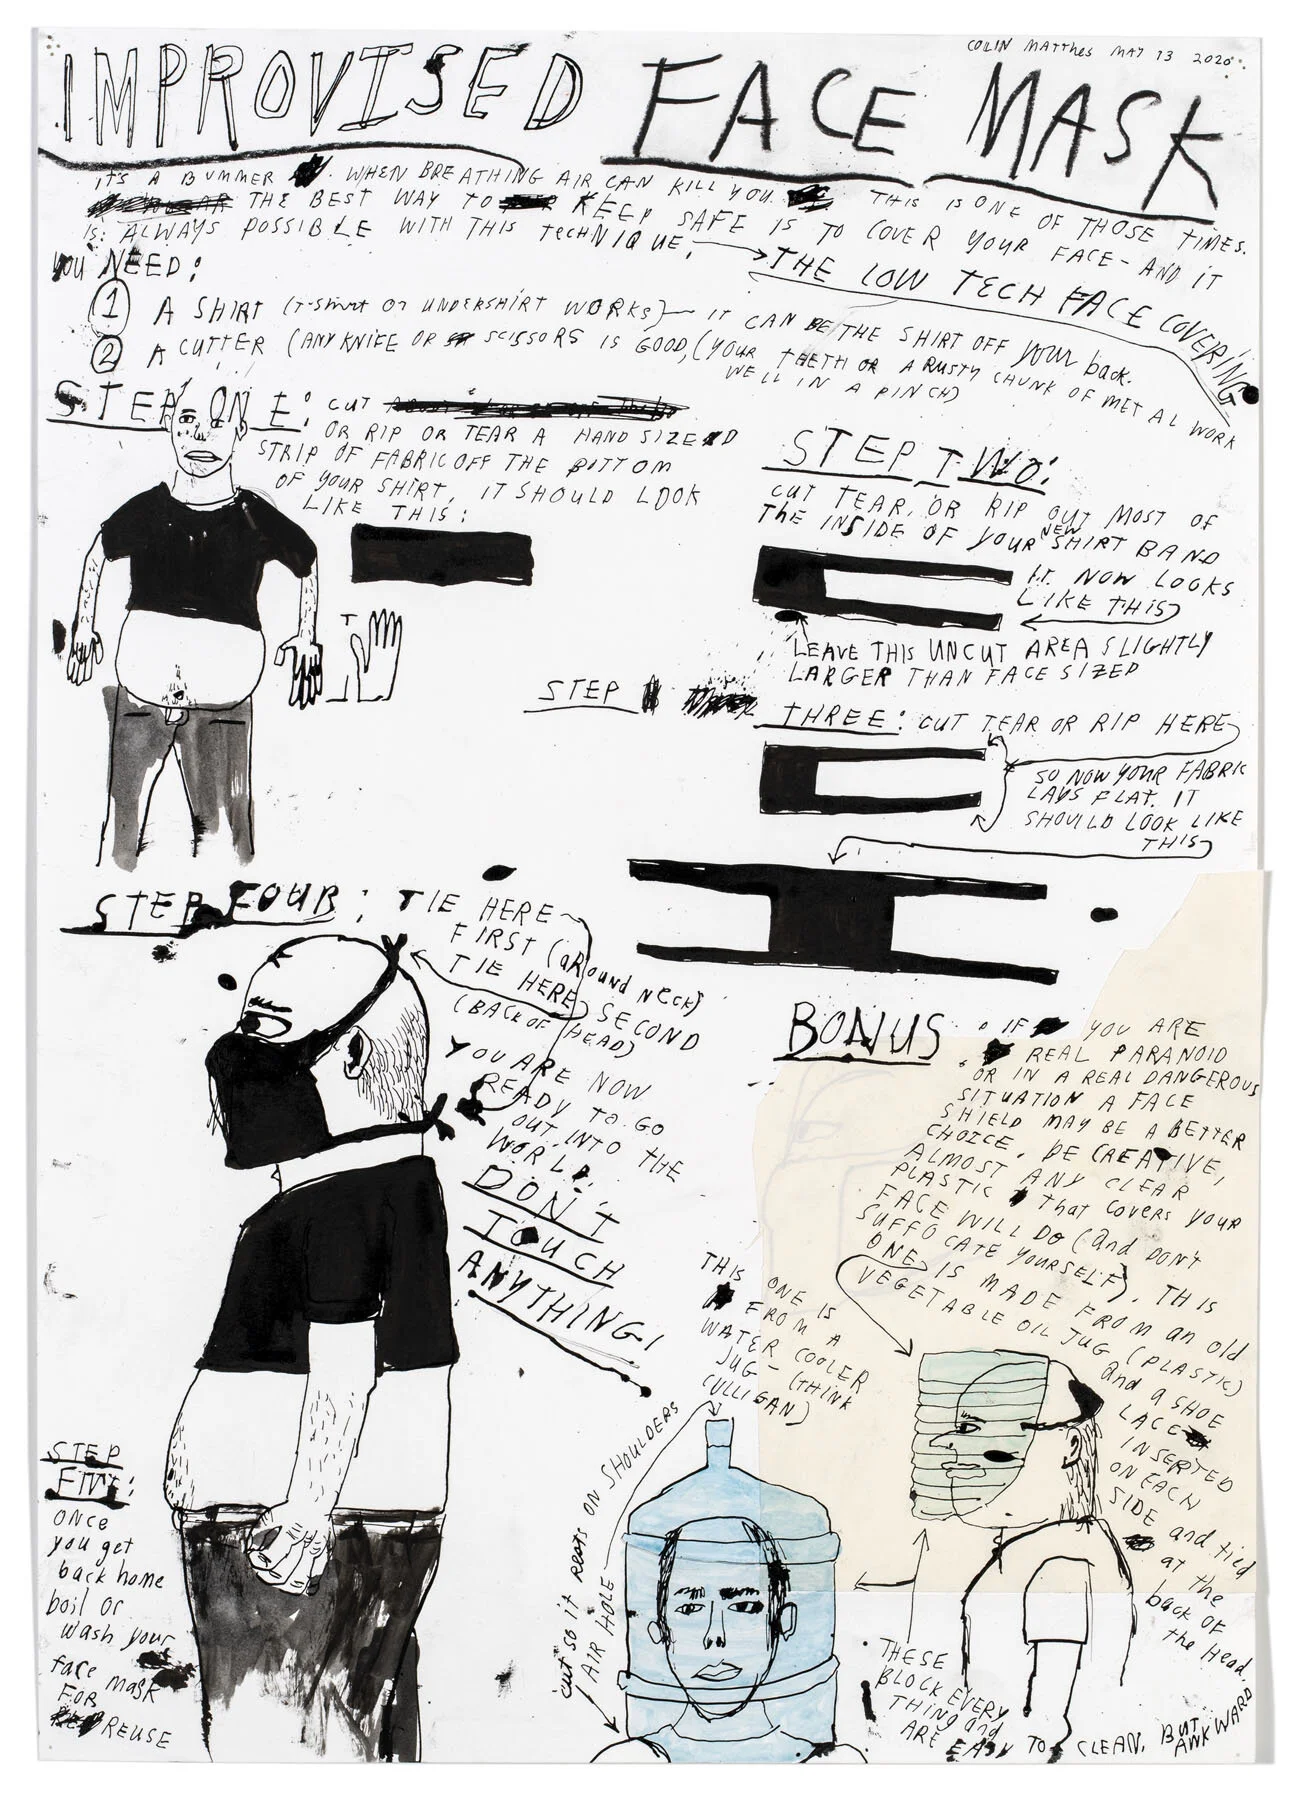 COLIN MATTHES MAY 13 2020
IMPROVISED FACE MASK
IT'S A BUMMER. WHEN BREATHING AIR CAN KILL YOU. THIS IS ONE OF THOSE TIMES.
THE BEST WAY TO KEEP SAFE IS TO COVER YOUR FACE - AND IT
IS ALWAYS POSSIBLE WITH THIS TECHNIQUE:
THE LOW TECH FACE COVERING
YOU NEED:
1 A SHIRT (T-Shirt or UNDERSHIRT WORKS) - IT CAN BE THE SHIRT OFF your back.
2 A CUTTER (ANY KNIFE OR SCISSORS IS GOOD, (YOUR TEETH OR A RUSTY CHUNK OF METAL WORK
WELL IN A PINCH)
STEP ONE: CUT
OR RIP OR TEAR A HAND SIZED
STRIP OF FABRIC OFF THE BOTTOM
OF YOUR SHIRT. IT SHOULD LOOK
LIKE THIS:
STEP TWO:
CUT TEAR, OR RIP OUT MOST OF
THE INSIDE OF YOUR NEW SHIRT BAND
IT NOW LOOKS
LIKE THIS
LEAVE THIS UNCUT AREA SLIGHTLY
LARGER THAN FACE SIZED
STEP THREE: CUT TEAR OR RIP HERE
SO NOW YOUR FABRIC
LAYS FLAT. IT
SHOULD LOOK LIKE
THIS
STEP FOUR: TIE HERE
FIRST (around neck)
TIE HERE SECOND
(BACK OF HEAD)
YOU ARE NOW
READY TO GO
OUT INTO THE
WORLD.
DON'T
TOUCH
ANYTHING!
STEP
FIVE:
once
you get
back home
boil or
wash your
face mask
FOR
REUSE
BONUS: IF YOU ARE
REAL PARANOID
OR IN A REAL DANGEROUS
SITUATION A FACE
SHIELD MAY BE A BETTER
CHOICE. BE CREATIVE,
ALMOST ANY CLEAR
PLASTIC that covers your
FACE WILL DO (and DON'T
SUFFOCATE YOURSELF). THIS
ONE IS MADE FROM an old
VEGETABLE OIL JUG (PLASTIC)
and a SHOE
LACE
INSERTED
ON EACH
SIDE and tied
at the
back OF
the Head.
THIS ONE IS
FROM A
WATER COOLER
JUG - (THINK
CULLIGAN)
cut so it rests on SHOULDERS
AIR HOLE
THESE
BLOCK EVERY
THING and
ARE EASY TO CLEAN, BUT
AWKWARD